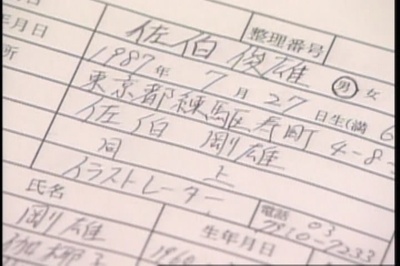 整理番号
佐伯 俊雄 男 女
年月日
1987年 7月 27日生(満 6
所
東京都練馬区寿町 4-8-
佐伯 剛雄
同上
イラストレーター
氏名
電話 03
7910-7233
剛雄
生年月日
伽椰子